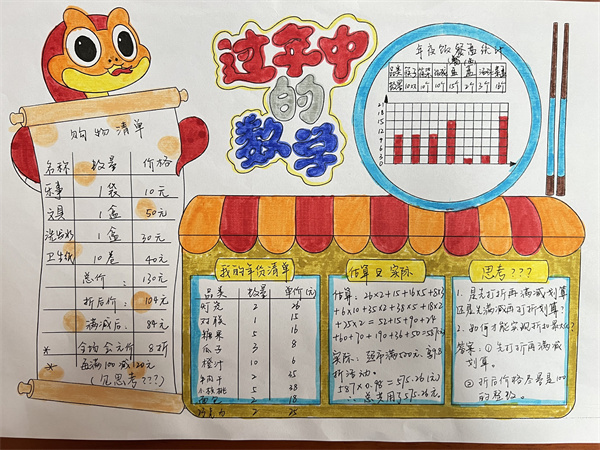 过年中
的
数学
购物清单
名称 数量 价格
乐事 1袋 10元
文具 1盒 50元
洗发水 1盒 30元
卫生纸 10卷 40元
总价: 130元
折后价: 104元
满减后: 84元
* 会员价 8折
* 每满100减20元
(见思考???)
年夜饭餐西统计
品类
数量
21
18
15
12
9
6
3
0
我的年货清单
品类 数量 单价(元)
灯克 2 26
对联 1 15
糖果 5 16
瓜子 3 8
橙汁 10 6
牛肉干 2 35
小核桃 5 38
面包 2 18
巧克力 2 25
估算与实际
估算: 26×2+15+16×5+8×3
+6×10+35×2+38×5+18×2
+25×2=52+15+90+24
+60+70+190+36+50=587
实际: 超市满500元, 9.8
折活动。
587×0.98=575.26(元)
∴总共用了575.26元。
思考???
1. 是先打折再满减划算
还是先满减再打折划算?
2. 如何才能实现折扣最大化?
答案: ①先打折再满减
划算。
②折后价格尽量是100
的整数。